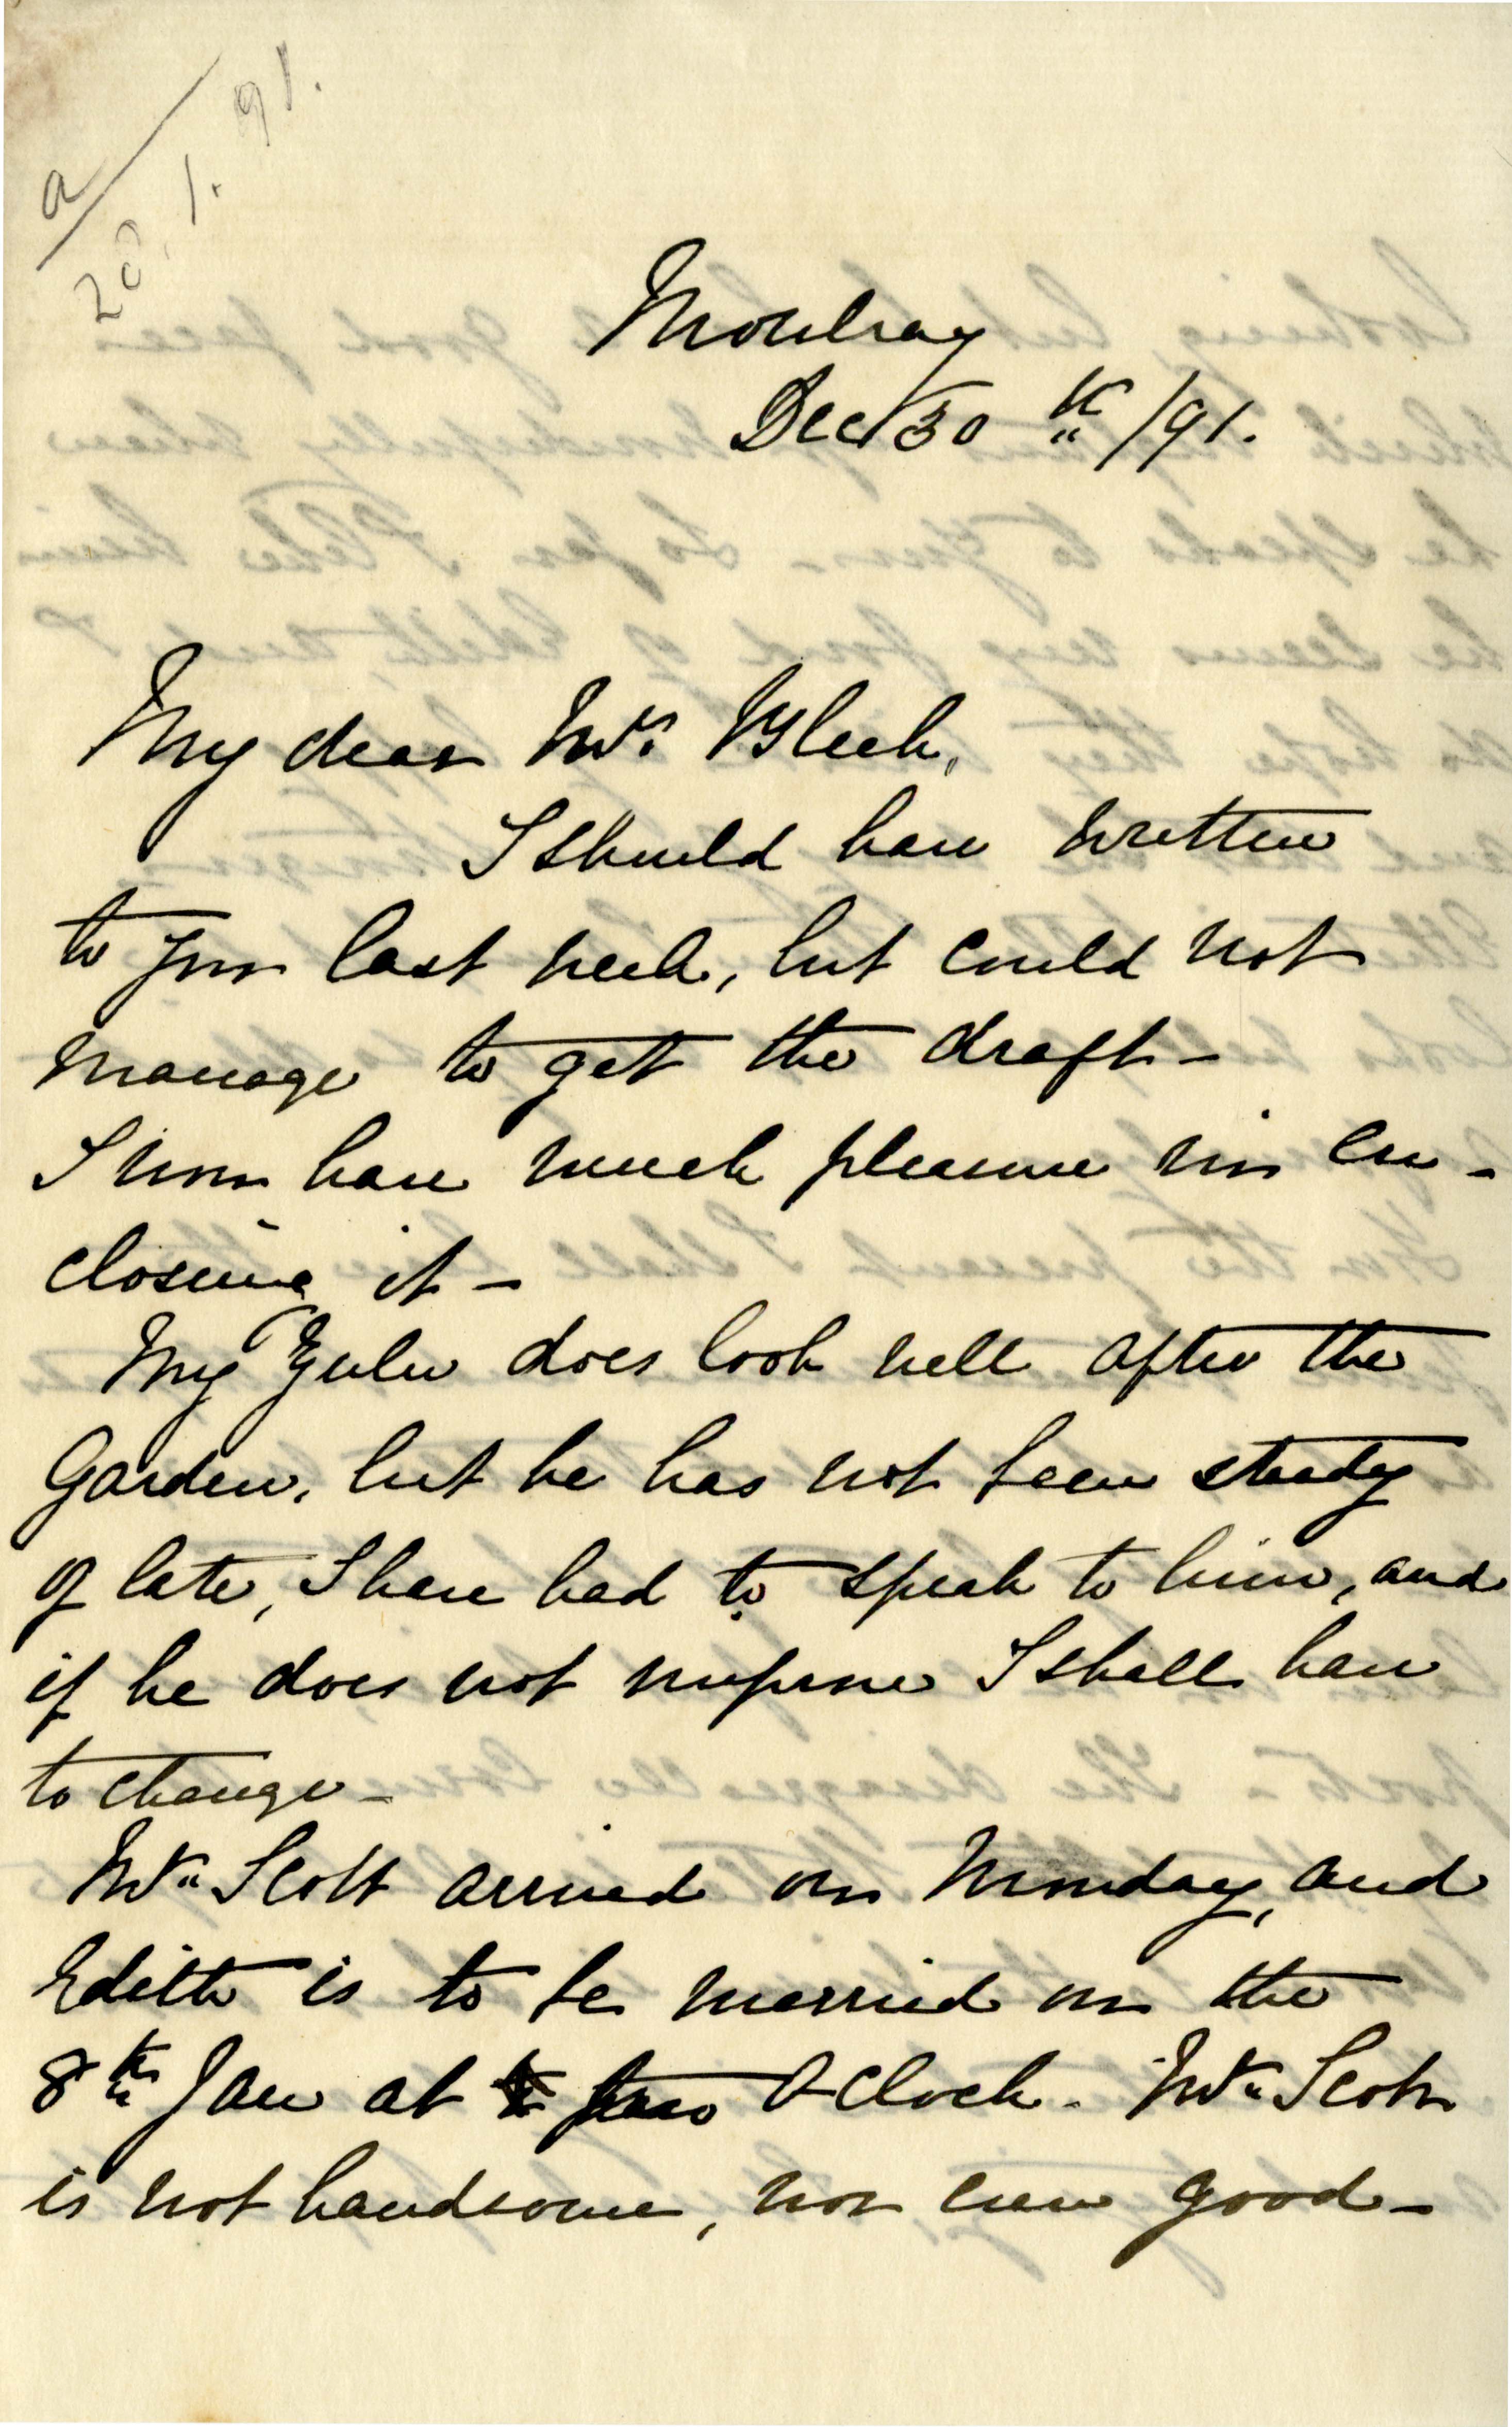 a/
20.1.91.
Mowbray
Dec 30th /91.
My dear Mrs Bleek,
I should have written
to you last week, but could not
manage to get the draft –
I now have much pleasure in en-
closing it –
My Zulu does look well after the
Garden, but he has not been steady
of late, I have had to speak to him, and
if he does not improve I shall have
to change –
Mr Scott arrived on Monday, and
Edith is to be married on the
8th Jan at two O'Clock. Mr Scott
is not handsome, nor even good-